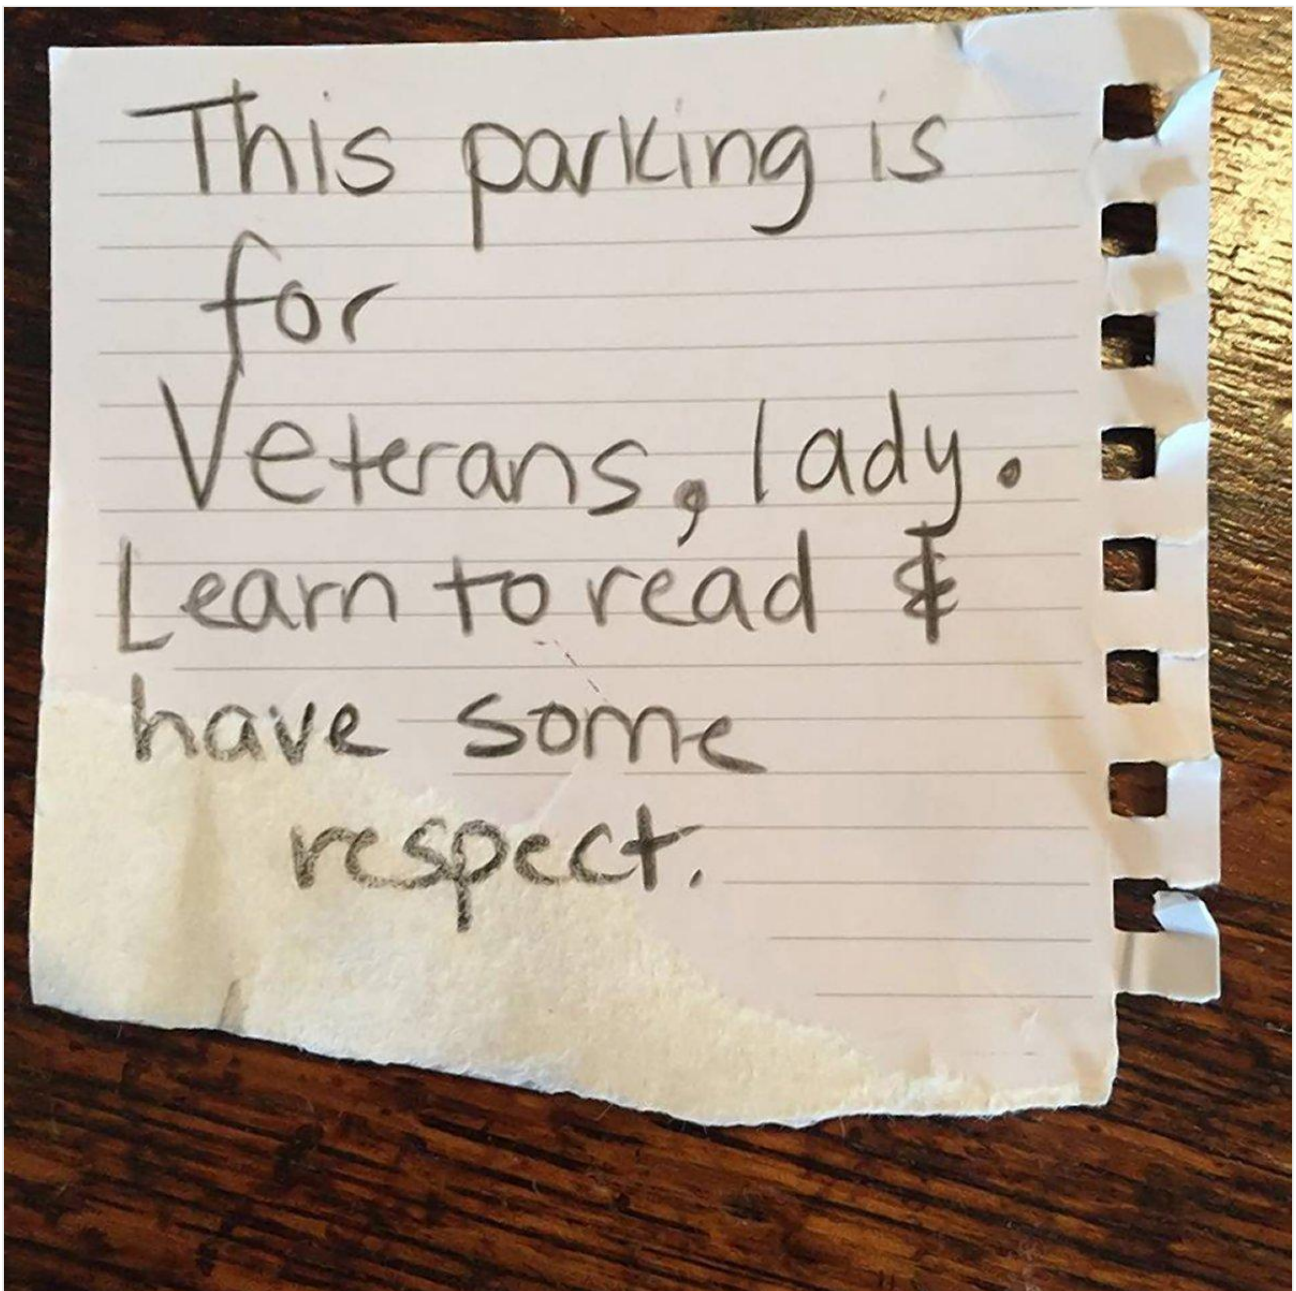 This parking is
for
Veterans, lady.
Learn to read &
have some
respect.